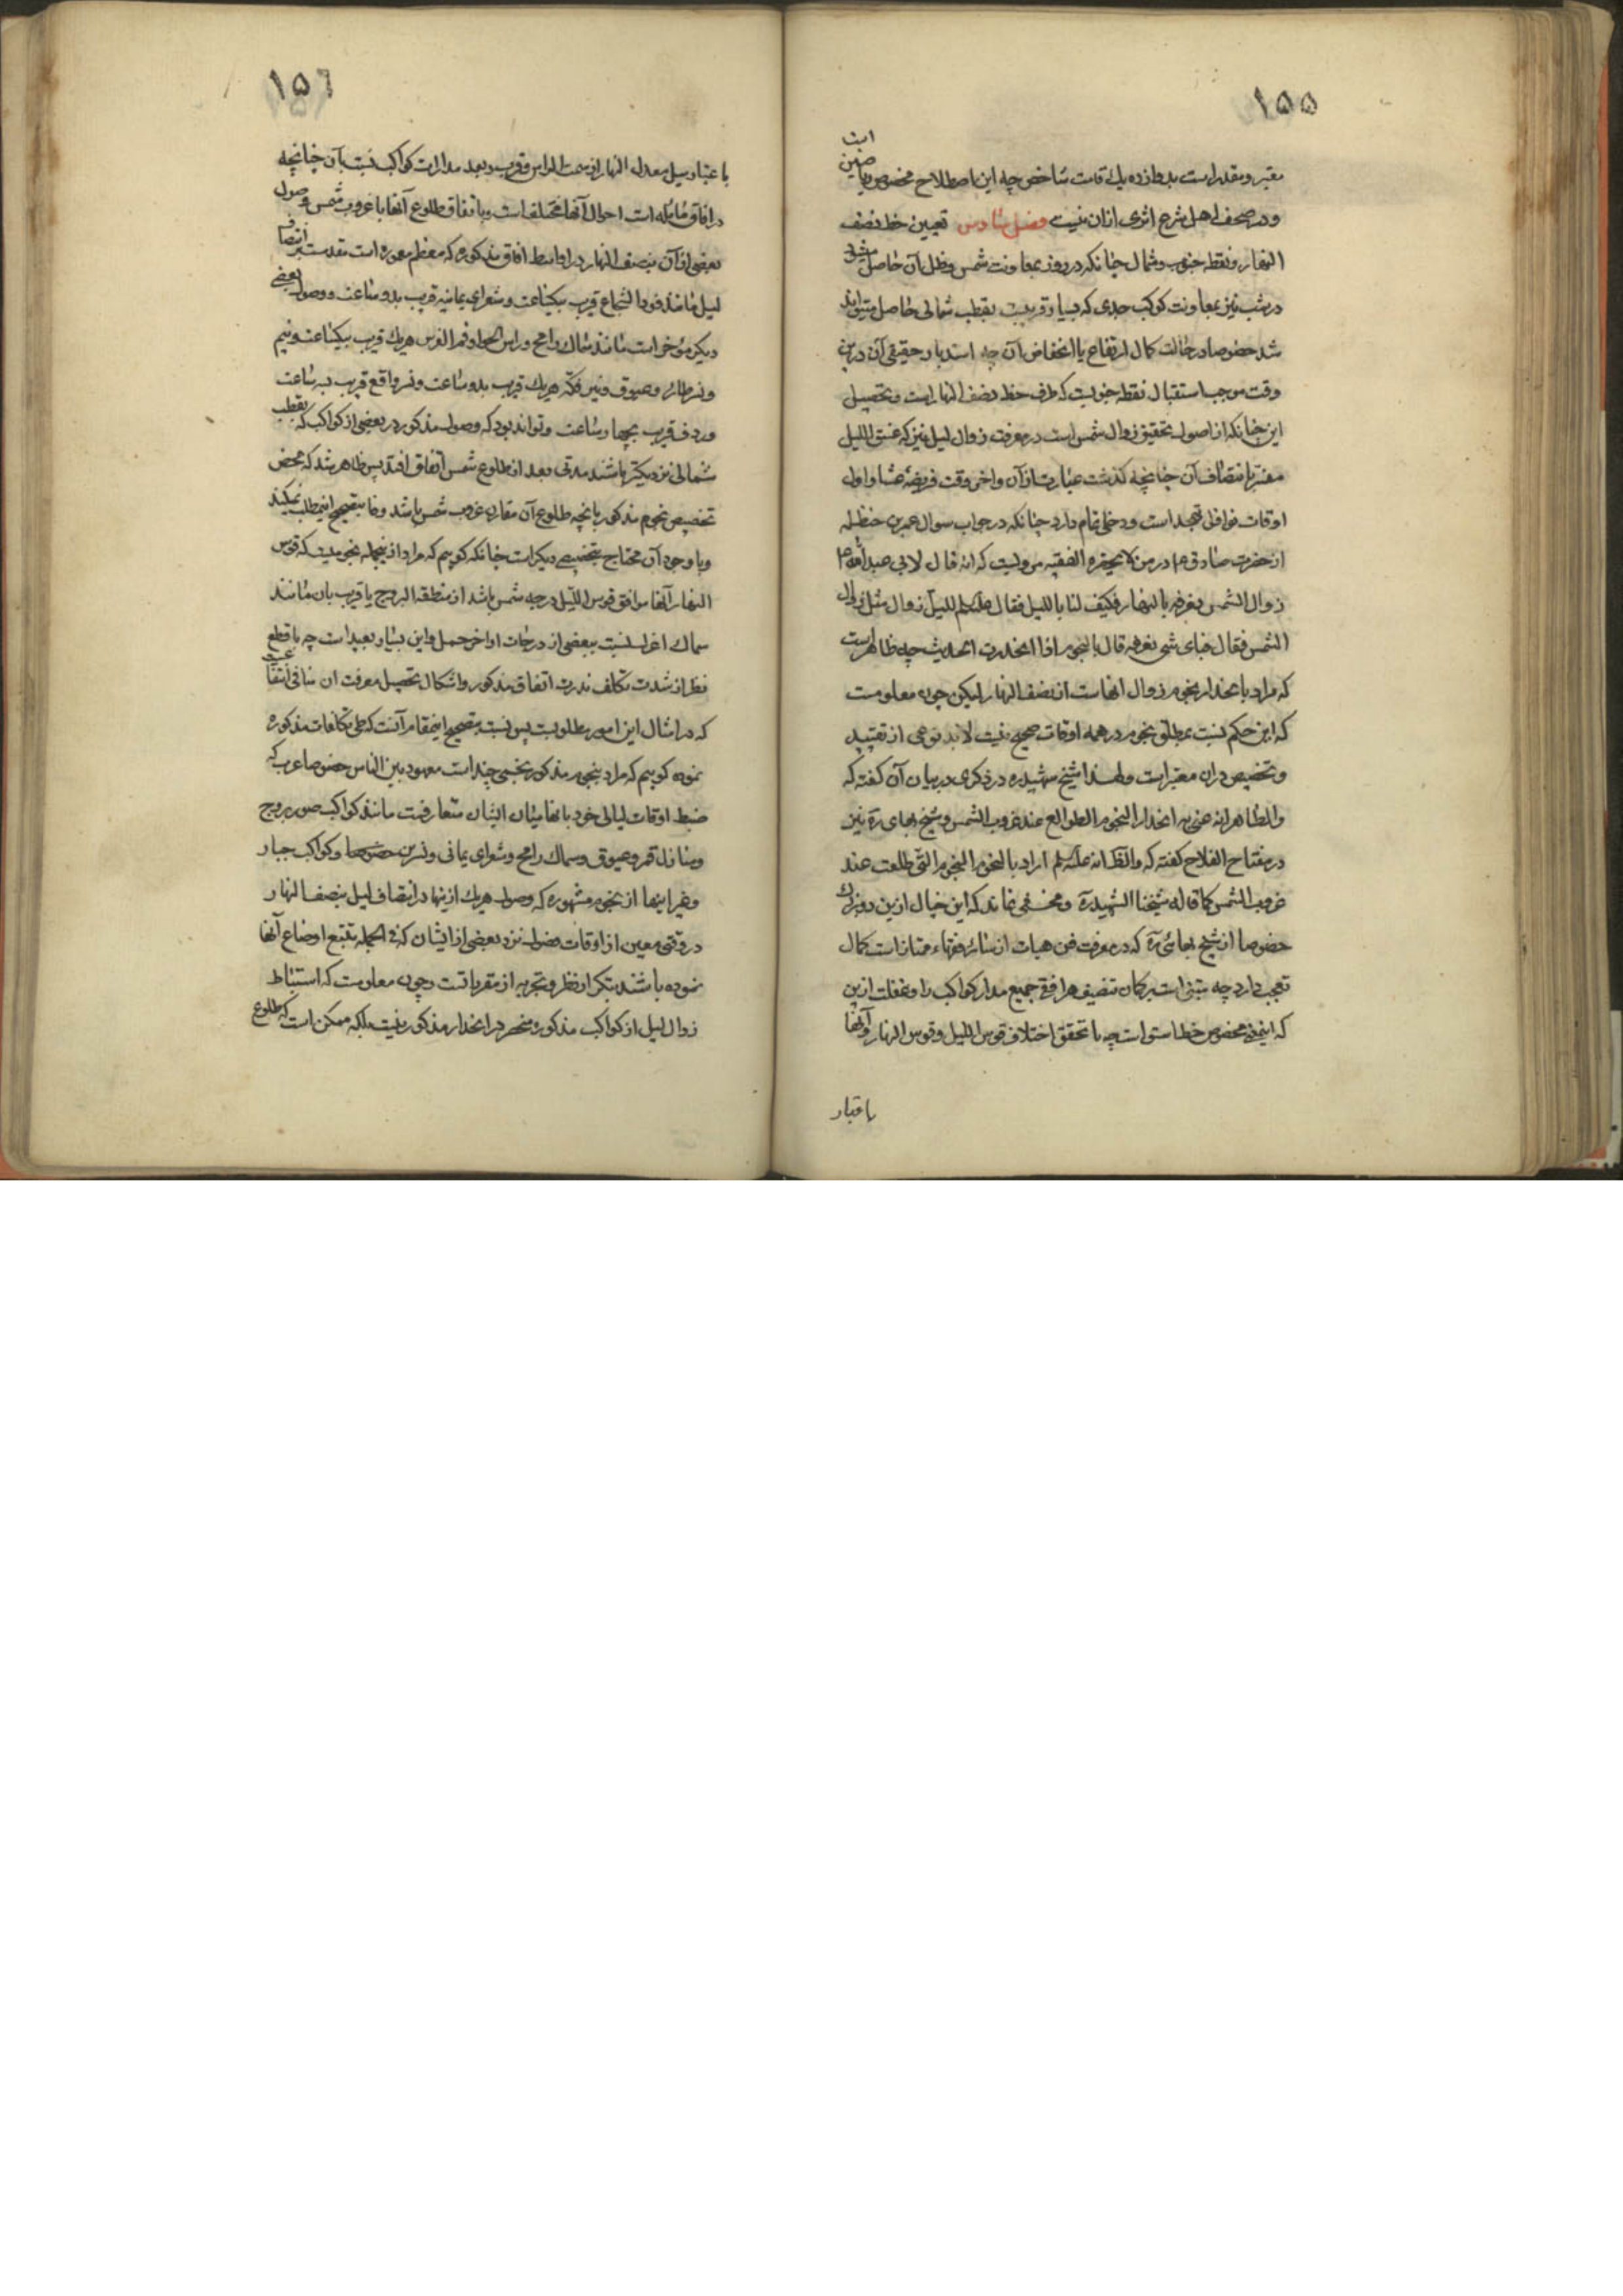 ۱۵۵
معتبر و مقدر است بدوازده یک قامت شاخص چه این اصطلاح مخصوص ریاضیین است
و در صحف اهل شرع اثری ازان نیست فصل سادس تعیین خط نصف
النهار و نقطه جنوب و شمال چنانکه در روز بمعاونت شمس و ظل آن حاصل میشود
در شب نیز بمعاونت کوکب جدی که بسیار قریبست بقطب شمالی حاصل میتواند
شد خصوصا در حالت کمال ارتفاع یا انخفاض آن چه استدبار حقیقی آن درین
وقت موجب استقبال نقطه جنوبیست که طرف خط نصف النهار است و تحصیل
این چنانکه از اصول تحقیق زوال شمس است در معرفت زوال لیل نیز که غسق اللیل
مفسر بانتصاف آن چنانچه گذشت عبارت ازآن و اخر وقت فریضه عشا و اول
اوقات نوافل تهجد است و دخلی تمام دارد چنانکه در جواب سوال عمر بن حنظله
از حضرت صادق ع در من لا یحضره الفقیه مرویست که انه قال لابی عبد الله ع
زوال الشمس نعرفه بالنهار فکیف لنا باللیل فقال علیه السلم للیل زوال مثل زوال
الشمس فقال فبای شی نعرفه قال بالنجوم اذا انحدرت الحدیث چه ظاهر است
که مراد بانحدار نجوم زوال انهاست از نصف النهار لیکن چون معلومست
که این حکم نسبت بمطلق نجوم در همه اوقات صحیح نیست لابد نوعی از تقیید
و تخصیص دران معتبر است و لهذا شیخ شهید ره در ذکری در بیان آن گفته که
والظاهر انه عنی به انحدار النجوم الطوالع عند غروب الشمس و شیخ بهای ره نیز
در مفتاح الفلاح گفته که والظ انه علیه السلم اراد بالنجوم النجوم التی طلعت عند
غروب الشمس کما قاله شیخنا الشهید ره و مخفی نماند که این خیال ازین دو بزرگ
خصوصا از شیخ بهائی ره که در معرفت فن هیات از سائر فقهاء ممتاز است کمال
تعجب دارد چه مبتنی است بر کمان تنصیف هر افقی جمیع مدار کواکب را و غفلت ازین
که اینمعنی مخصوص خط استوا است چه با تحقق اختلاف قوس اللیل و قوس النهار و آنها
باعتبار
۱۵۶
باعتبار میل معدل النهار از سمت الراس و قرب و بعد مدارات کواکب نسبت بآن چنانچه
در افاق مائله است احوال آنها مختلف است و باتفاق طلوع آنها با غروب شمس وصول
بعضی ازآن بنصف النهار در اواسط افاق مذکوره که معظم معموره است مقدم است بر انتصاف
لیل مانند فرد الشجاع قریب بیکساعت و شعرای یمانیه قریب بدو ساعت و وصول بعضی
دیگر مؤخر است مانند سماک رامح و راس الحوا و فم الفرس هر یک قریب بیکساعت و نیم
و نسر طائر و عیوق و نیر فکه هر یک قریب بدو ساعت و نسر واقع قریب بسه ساعت
و ردف قریب بچهار ساعت و تواند بود که وصول مذکور در بعضی از کواکب که بقطب
شمالی نزدیکتر باشند مدتی بعد از طلوع شمس اتفاق افتد پس ظاهر شد که محض
تخصیص نجوم مذکور بانچه طلوع آن مقارن غروب شمس باشد وفا بتصحیح اینمطلب نمیکند
و با وجود آن محتاج بتخصیصی دیگر است چنانکه گوییم که مراد ازینجمله نجومیست که قوس
النهار آنها موافق قوس اللیل درجه شمس باشد از منطقة البروج یا قریب بان مانند
سماک اعزل نسبت ببعضی از درجات اواخر حمل و این بسیار بعید است چه با قطع
نظر از شدت تکلف ندرت اتفاق مذکور و اشکال تحصیل معرفت ان منافی انتفاعست
که در امثال این امور مطلوبست پس نسبت بتصحیح اینمقام آنست که طی تکلفات مذکوره
نموده گوییم که مراد بنجوم مذکور نجمی چند است معهود بین الناس خصوصا عرب که
ضبط اوقات لیالی خود بانها میان ایشان متعارفست مانند کواکب صور بروج
و منازل قمر و عیوق و سماک رامح و شعرای یمانی و نسرین و کواکب جبار
و غیر اینها از نجوم مشهوره که وصول هر یک ازینها در انتصاف لیل بنصف النهار
در وقتی معین از اوقات فصول نزد بعضی از ایشان که فی الجمله تتبع اوضاع آنها
نموده باشند بتکرار نظر و تجربه از مقرراتست و چون معلومست که استنباط
زوال لیل از کواکب مذکوره منحصر در انحدار مذکور نیست بلکه ممکن است که طلوع